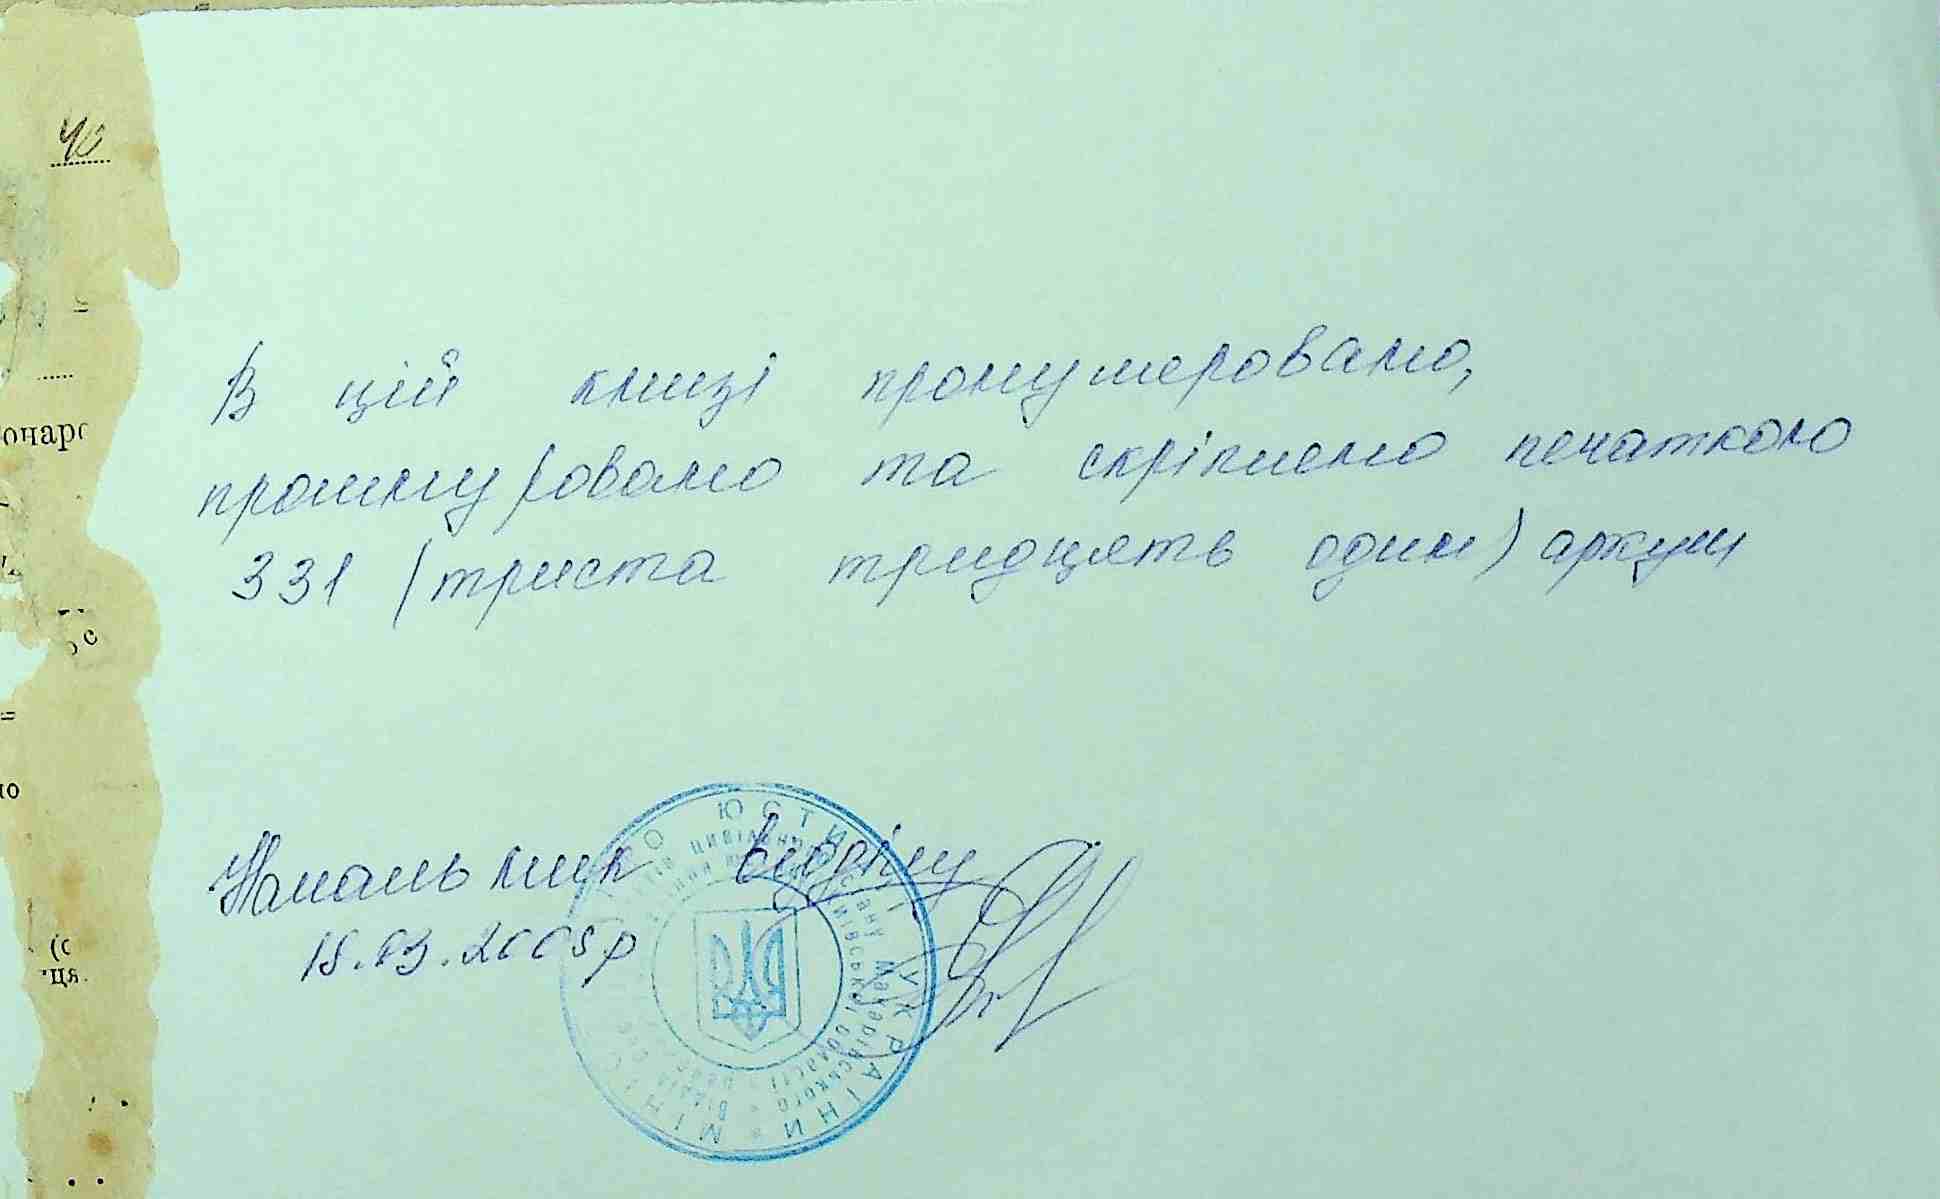 40
В цій книзі пронумеровано,
прошнуровано та скріплено печаткою
331 (триста тридцять один) аркуш
Начальник відділу
18.03.2005р
МІНІСТЕРСТВО ЮСТИЦІЇ УКРАЇНИ
онаро
ця.